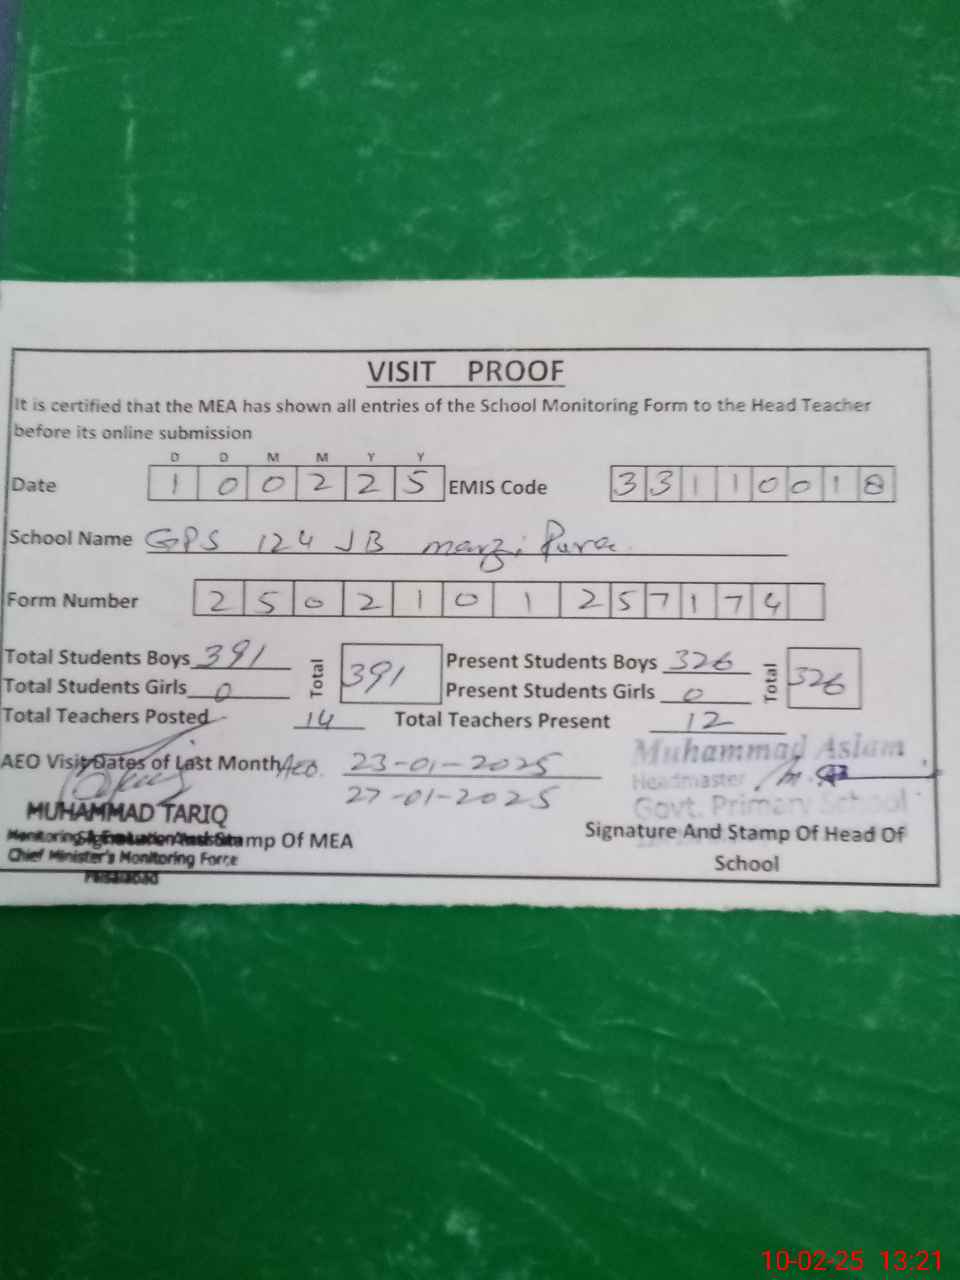 VISIT PROOF
It is certified that the MEA has shown all entries of the School Monitoring Form to the Head Teacher
before its online submission
D D M M Y Y
Date 1 0 0 2 2 5 EMIS Code 3 3 1 1 0 0 1 8
School Name GPS 124 JB marzi Pura
Form Number 2 5 0 2 1 0 1 2 5 7 1 7 4
Total Students Boys 391 Total 391 Present Students Boys 326 Total 326
Total Students Girls 0 Present Students Girls 0
Total Teachers Posted 14 Total Teachers Present 12
AEO Visit Dates of Last Month AEO. 23-01-2025
27-01-2025
Muhammad Aslam
Headmaster
Govt. Primary School
MUHAMMAD TARIQ
Stamp Of MEA
Chief Minister's Monitoring Force
Signature And Stamp Of Head Of
School
10-02-25 13:21